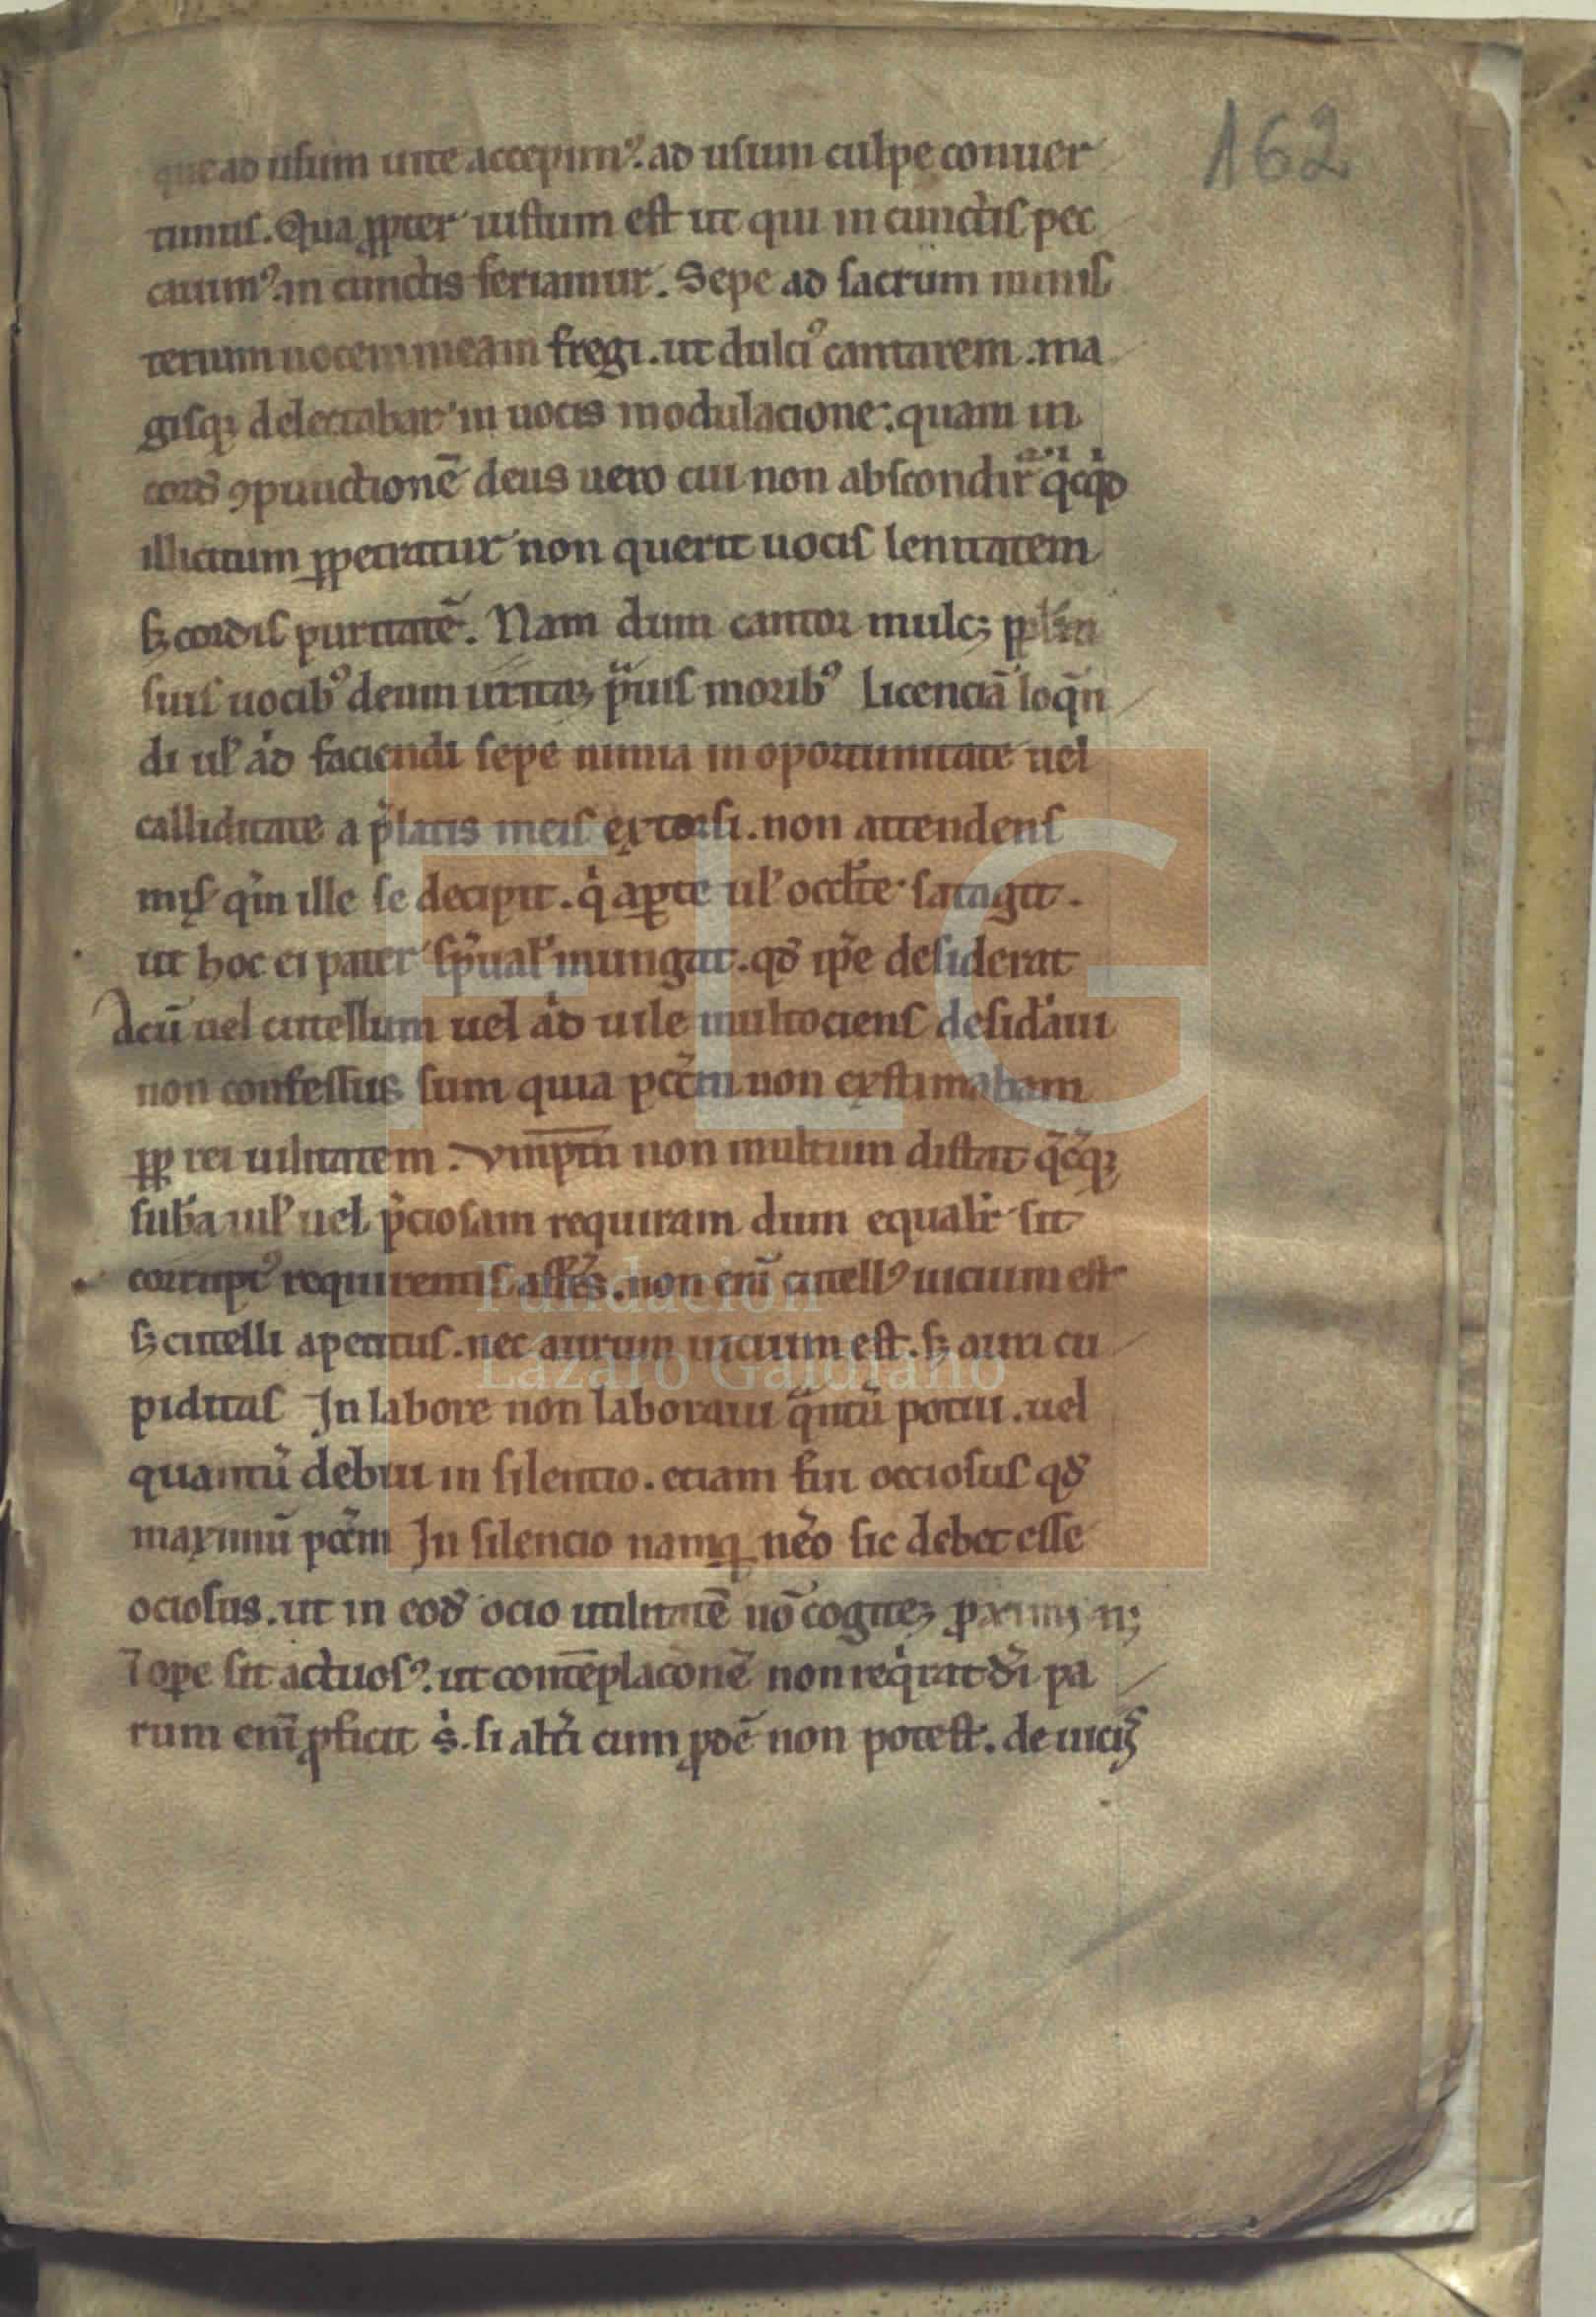 162
que ad usum uite accepimꝰ. ad usum culpe conuer
timus. Qua ꝓpter iustum est ut qui in cunctis pec
cauimꝰ. in cunctis feriamur. Sepe ad sacrum minis
terium uocem meam fregi. ut dulciꝰ cantarem. ma
gisqꝫ delectabar in uocis modulacione. quam in
cordꝭ ꝯpunctionē deus uero cui non abscondit᷑ qͥcqͥd
illicitum ꝑpetratur non querit uocis lenitatem
sꝫ cordis puritatē. Nam dum cantor mulcꝫ
suis uocibꝰ deum irritaꝫ pͣuis moribꝰ Licenciā loq̄n
di uƚ aͥd faciendi sepe nimia in oportunitate uel
calliditate a p̄latis meis extorsi. non attendens
qm̄ ille se decipit. qͥ aꝑte uƚ occƚte satagit.
ut hoc ei pater sp̄ualꝭ iniungat. qđ ip̄e desiderat
Acū uel cutellum uel aͥd uile multociens desid̓aui
non confessus sum quia pcc̄m non existimabam
ꝓꝑ rei uilitatem. Vm̄ptm̄ non multum distat qͥcqͥꝫ
sub̄a uiƚ uel p̄ciosam requiram dum equalit᷑ sit
corruptꝰ requirentis affc̄s. non enī cutellꝰ uicium est
sꝫ cutelli apetitus. nec aurum uicium est. sꝫ auri cu
piditas In labore non laboraui qͣntū potui. uel
quantū debui in silentio. etiam fui occiosus qđ
maximū pcc̄m In silencio namqꝫ nēo sic debet esse
ociosus. ut in eođ ocio utilitatē nō cogiteꝫ ꝓximi n̄
ꞇ oꝑe sit actuosꝰ. ut contēplaconē non reqͥrat dī pa
rum enī ꝓficit s̓. si alt̓i cum ꝓdē non potest. de uiciꝭ
FLG
Fundación
Lázaro Galdiano